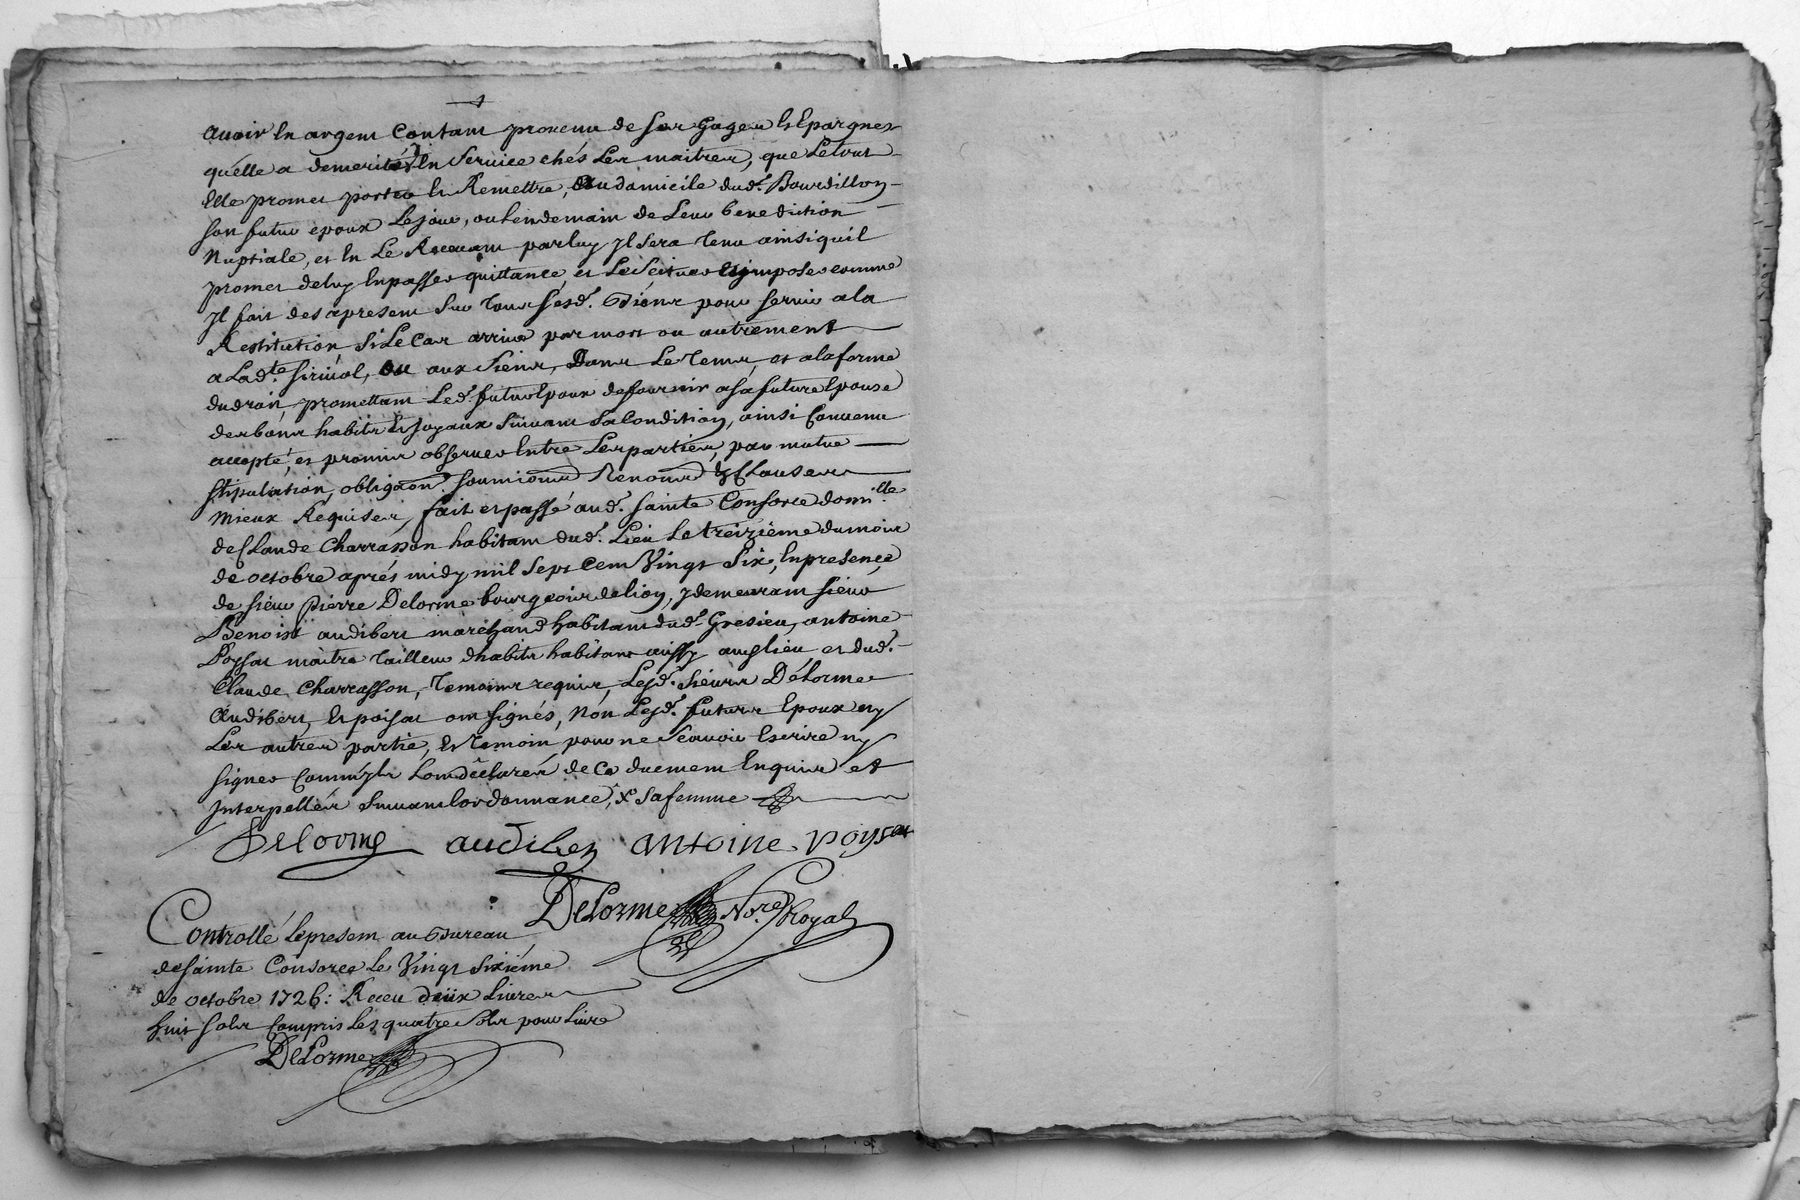 avoir En argent Contant provenu de ses Gages Et Epargnes
qu'elle a demerité En Service chés Les maitres, que Le tout
Elle promet porter Et Remettre, Au domicile dud.t Bourdillon
son futur epoux Le jour, ou lendemain de Leur benediction
Nuptiale, et En Le Recevant par luy Il sera Tenu ainsi quil
promet de luy En passer quittance, et Les imposer comme
Il fait des apresent Sur Tous sesd.t Biens pour servir a la
Restitution Si Le Cas arrive par mort ou autrement
a Lad.te sirivol, Ou aux Siens, Dans Le Tems, et a la forme
du droit, promettant Led.t futur Epoux de fournir a sa future Epouse
des bons habits Et Joyaux Suivant sa Condition, ainsi Convenu
accepté, et promis observer Entre Les parties, par mutue
stipulation, obliga͠on, soumi͠ons Renon͠s & Clauses
mieux Requises, fait et passé aud.t sainte Consorce domi.lle
de Claude Charrasson habitant dud.t Lieu Le treizième du mois
de octobre aprés midy mil Sept Cent Vingt Six, En presence
de sieur Pierre Delorme bourgeois de lion, y demeurant sieur
Benoist audibert marchand habitant dud.t Gresieu, antoine
Poysat maitre Tailleur d'habits habitant aussy aud. lieu et dud.t
Claude Charrasson, Temoins requis, Lesd.t sieurs Délorme
Audibert, Et poisat ont signés, Non Lesd.t futurs Epoux ny
Les autres partie, Et Temoin pour ne Scavoir Escrire ny
signer Comm'ils L'ont déclarés de Ce duement Enquis et
Interpellés Suivant L'ordonnance, x sa femme
Delorme audibert antoine poysat
Delorme No.re Royal
Controllé Le present au Bureau
de sainte Consorce Le Vingt Sixiéme
de octobre 1726: Receu deux Livres
huit sols Compris Les quatre Sols pour Livre
DeLorme